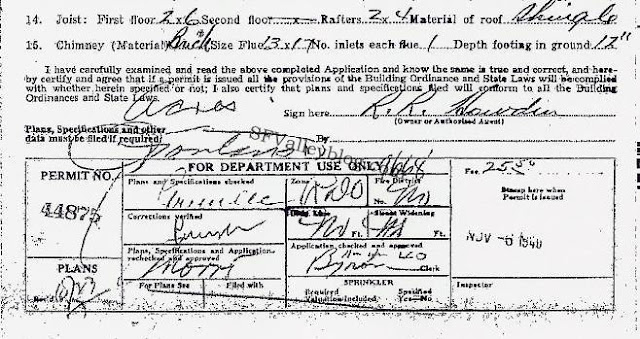 14. Joist: First floor 2x6 Second floor — x — Rafters 2x4 Material of roof Shingle
15. Chimney (Material) Brick Size Flue 13x17 No. inlets each flue 1 Depth footing in ground 12"
I have carefully examined and read the above completed Application and know the same is true and correct, and here-
by certify and agree that if a permit is issued all the provisions of the Building Ordinance and State Laws will be complied
with whether herein specified or not; I also certify that plans and specifications filed will conform to all the Building
Ordinances and State Laws.
Sign here R. R.
(Owner or Authorized Agent)
Plans, Specifications and other
data must be filed if required
By
SFValleyblog
PERMIT NO.
44875
PLANS
FOR DEPARTMENT USE ONLY
Plans and Specifications checked
Zone
Fire District
No. No
Corrections verified
Bldg. Line
No Ft.
Street Widening
No Ft.
Plans, Specifications and Application
rechecked and approved
Application checked and approved
Clerk
For Plans See
Filed with
SPRINKLER
Required
Valuation Included
Specified
Yes—No
Fee 25.50
Stamp here when
Permit is issued
NOV -6 1940
Inspector